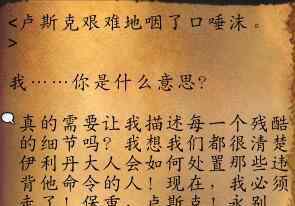 <卢斯克艰难地咽了口唾沫。
>
我……你是什么意思?
真的需要让我描述每一个残酷
的细节吗?我想我们都很清楚
伊利丹大人会如何处置那些违
背他命令的人!现在,我必须
走了!保重,卢斯克!永别